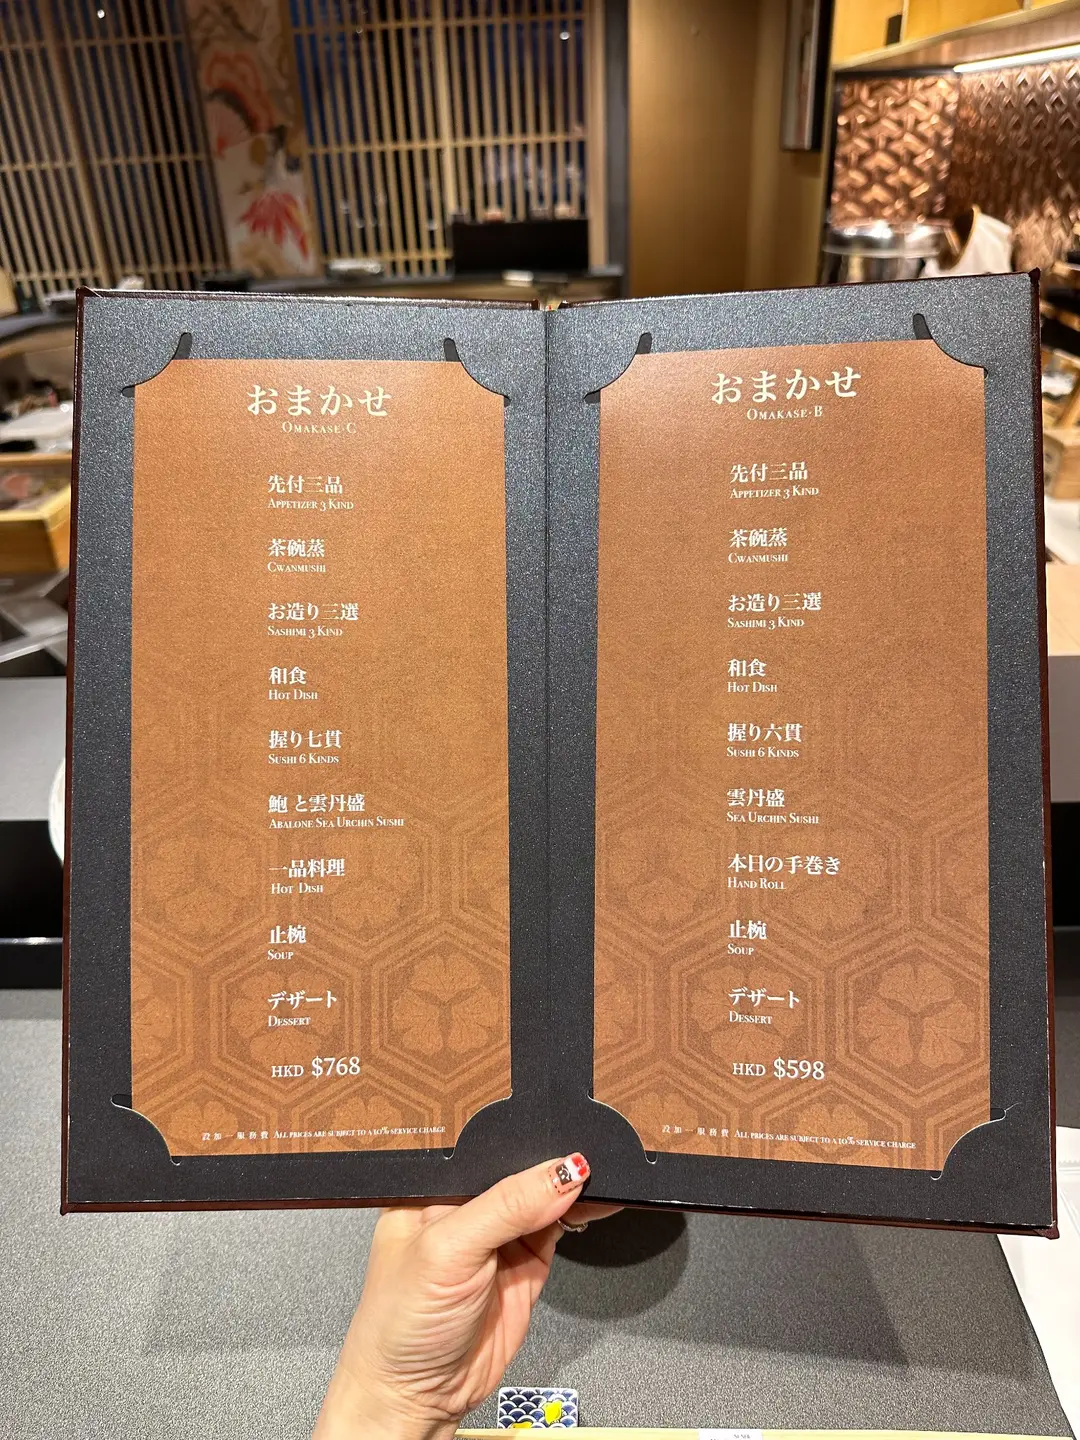 おまかせ
Omakase·C
先付三品
Appetizer 3 Kind
茶碗蒸
Cwanmushi
お造り三選
Sashimi 3 Kind
和食
Hot Dish
握り七貫
Sushi 6 Kinds
鮑と雲丹盛
Abalone Sea Urchin Sushi
一品料理
Hot Dish
止椀
Soup
デザート
Dessert
HKD $768
設加一服務費 All prices are subject to a 10% service charge
おまかせ
Omakase·B
先付三品
Appetizer 3 Kind
茶碗蒸
Cwanmushi
お造り三選
Sashimi 3 Kind
和食
Hot Dish
握り六貫
Sushi 6 Kinds
雲丹盛
Sea Urchin Sushi
本日の手巻き
Hand Roll
止椀
Soup
デザート
Dessert
HKD $598
設加一服務費 All prices are subject to a 10% service charge